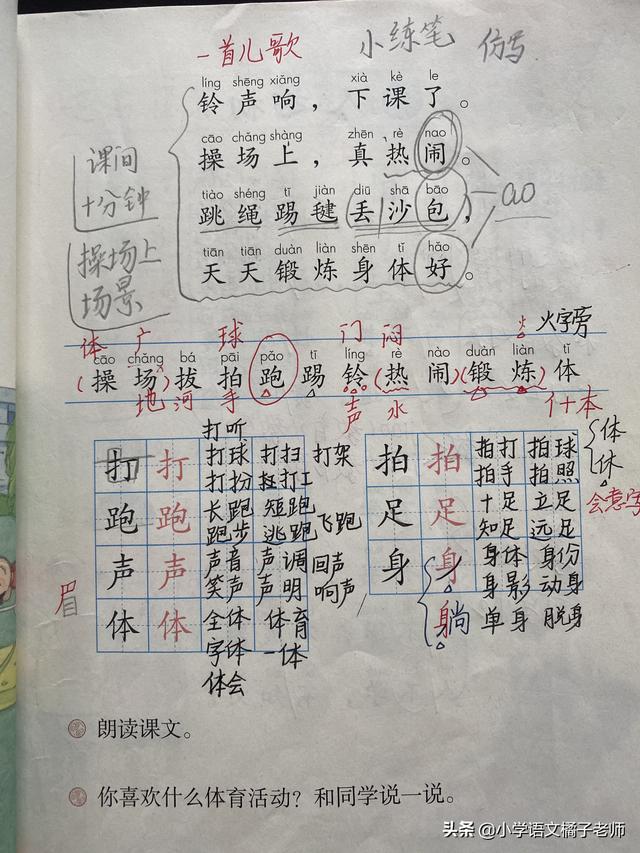 一首儿歌 小练笔 仿写
líng shēng xiǎng xià kè le
铃声响，下课了。
cāo chǎng shàng zhēn rè nao
操场上，真热闹。
课间
十分钟
tiào shéng tī jiàn diū shā bāo
跳绳踢毽丢沙包，
ao
tiān tiān duàn liàn shēn tǐ hǎo
天天锻炼身体好。
操场上
场景
体 广 球 门 闷 火 火字旁
cāo chǎng bá pāi pǎo tī líng rè nào duàn liàn tǐ
(操场)拔拍跑踢铃(热闹)(锻炼)体
地 河 手 声 水 亻+本
体
休
会意字
打听
打 打 打球 打扫 打架
打扮 打工
跑 跑 长跑 短跑 飞跑
跑步 逃跑
声 声 声音 声调 回声
笑声 声明 响声
体 体 全体 体育
字体 一体
体会
拍 拍 拍打 拍球
拍手 拍照
足 足 十足 立足
知足 远足
身 身 身体 身份
身影 动身
躺 单身 脱身
朗读课文。
你喜欢什么体育活动？和同学说一说。
头条 @小学语文橘子老师